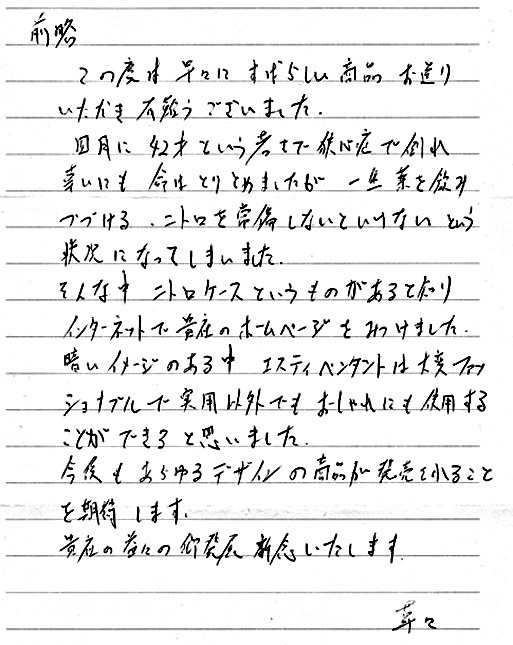 前略
この度は 早々に すばらしい 商品 お送り
いただき 有難う ございました.
四月に 42才 という 若さで 狭心症で 倒れ
幸いにも 命は とりとめましたが 一生 薬を 飲み
つづける . ニトロを 常備 しないといけない という
状況に なって しまいました.
そんな中 ニトロケース という ものが あると知り
インターネットで 貴社の ホームページを みつけました.
暗い イメージの ある中 エスティペンダントは 大変 ファッ
ショナブルで 実用 以外でも おしゃれにも 使用する
ことが できる と思いました.
今後も あらゆる デザインの 商品が 発売されること
を 期待 します.
貴社の 益々の 御発展 祈念いたします.
草々